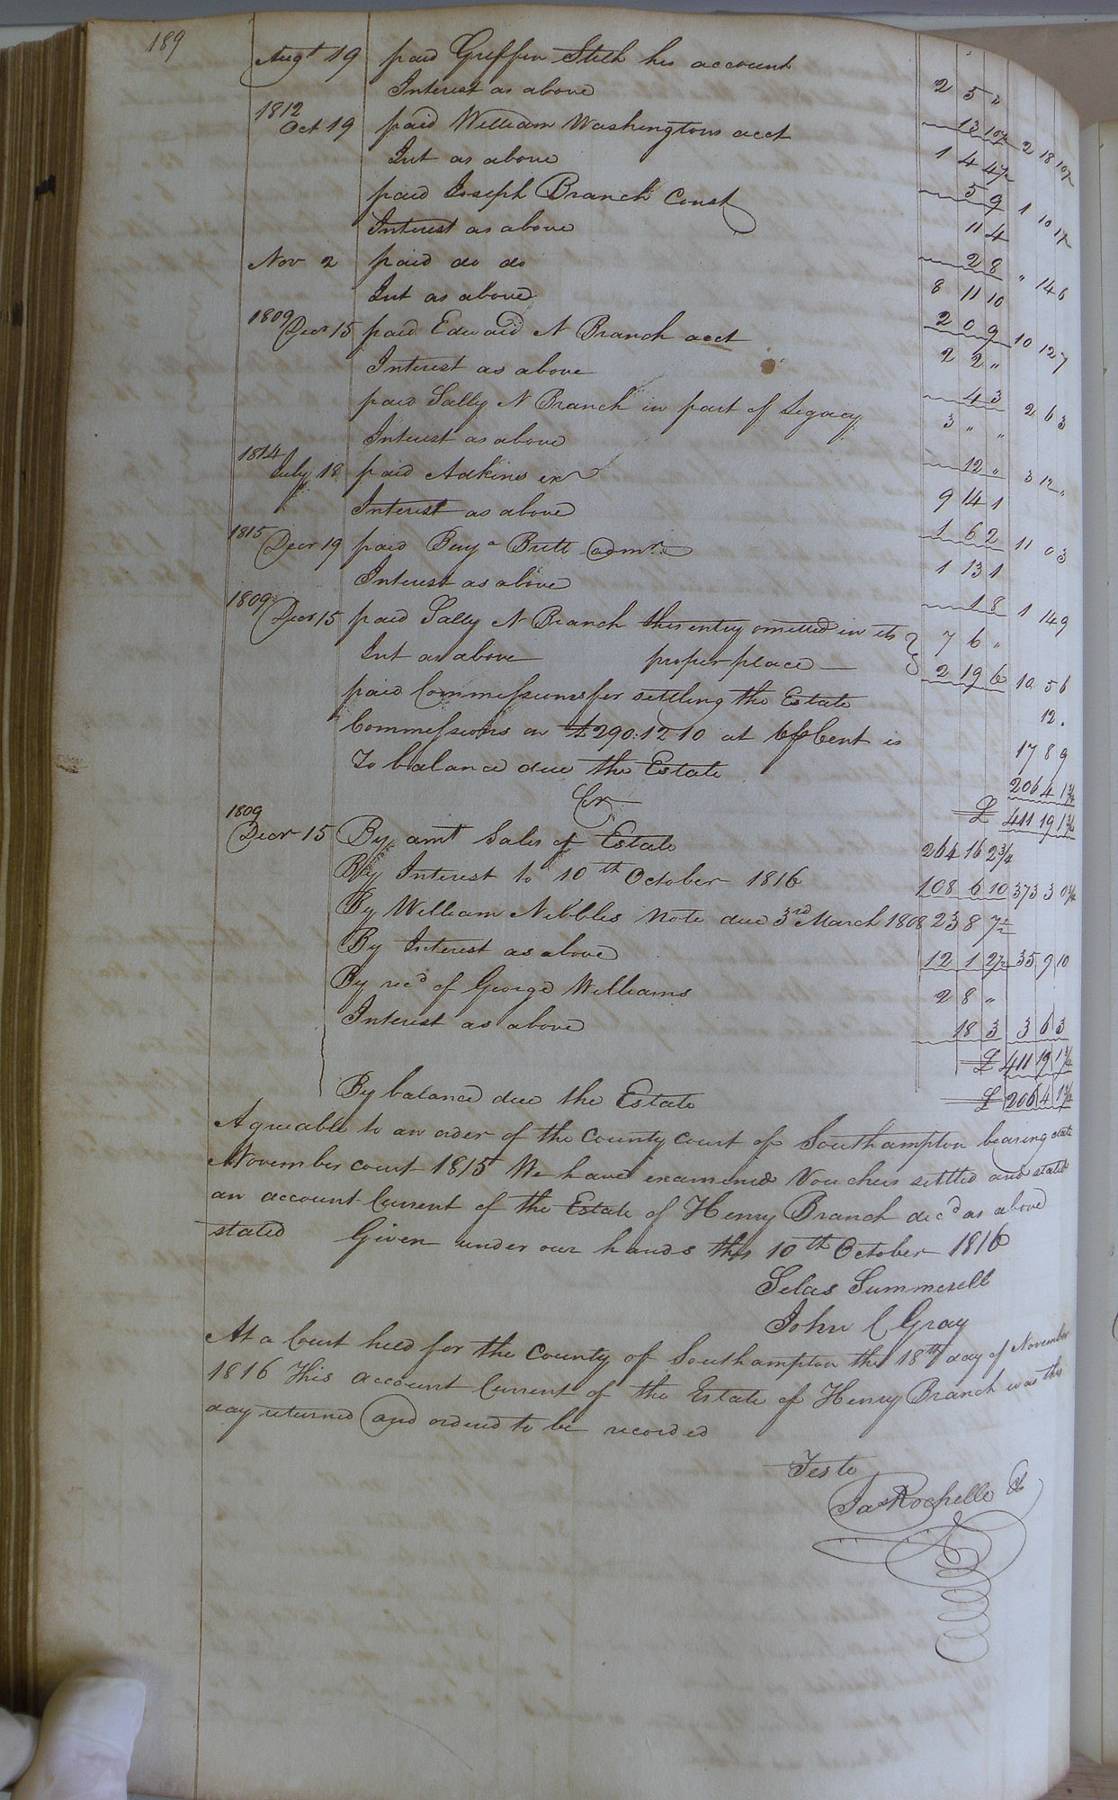 189
Augt 19 paid Griffin Stith his account 2 5 "
Interest as above 13 10½ 2 18 10½
1812
Oct 19 paid William Washingtons acct 1 4 4½
Int as above 5 9 1 10 1½
paid Joseph Branch Const 11 4
Interest as above 2 8 " 14 6
Nov 2 paid do do 8 11 10
Int as above 2 0 9 10 12 7
1809 Decr 15 paid Edward N Branch acct 2 2 "
Interest as above 4 3 2 6 3
paid Sally N Branch in part of Legacy 3 " "
Interest as above 12 " 3 12 "
1814
July 18 paid Adkins exr 9 14 1
Interest as above 1 6 2 11 0 3
1815 Decr 19 paid Benja Britt admr 1 13 1
Interest as above 1 8 1 14 9
1809 Decr 15 paid Sally N Branch this entry omitted in its 7 6 "
Int as above proper place 2 19 6 10 5 6
paid Commissioners for settling the Estate 12 .
Commissions on £290:12 10 at 6 p Cent is 17 8 9
To balance due the Estate 206 4 1¾
Cr £ 411 19 1¾
1809
Decr 15 By amt Sales of Estate 264 16 2¾
By Interest to 10th October 1816 108 6 10 373 3 0¾
By William Nibbles note due 3rd March 1808 23 8 7½
By Interest as above 12 1 2½ 35 9 10
By recd of George Williams 2 8 "
Interest as above 18 3 3 6 3
£ 411 19 1¾
By balance due the Estate £ 206 4 1¾
Agreeable to an order of the County Court of Southampton bearing date
November court 1815 We have examined Vouchers settled and stated
an account Current of the Estate of Henry Branch decd as above
stated Given under our hands this 10th October 1816
Silas Summerell
John C Gray
At a Court held for the County of Southampton the 18th day of November
1816 This account Current of the Estate of Henry Branch was this
day returned and ordered to be recorded
Teste
Jas Rochelle Ck